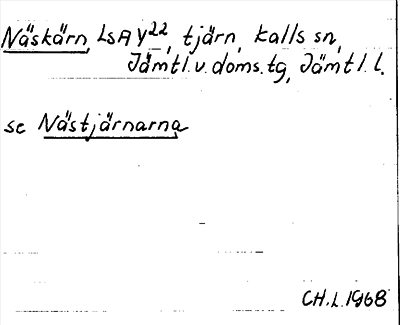 Näskärn, LSA Y22, tjärn, Kalls sn,
Jämtl. v. doms. tg, Jämtl. l.
se Nästjärnarna
CH.L. 1968